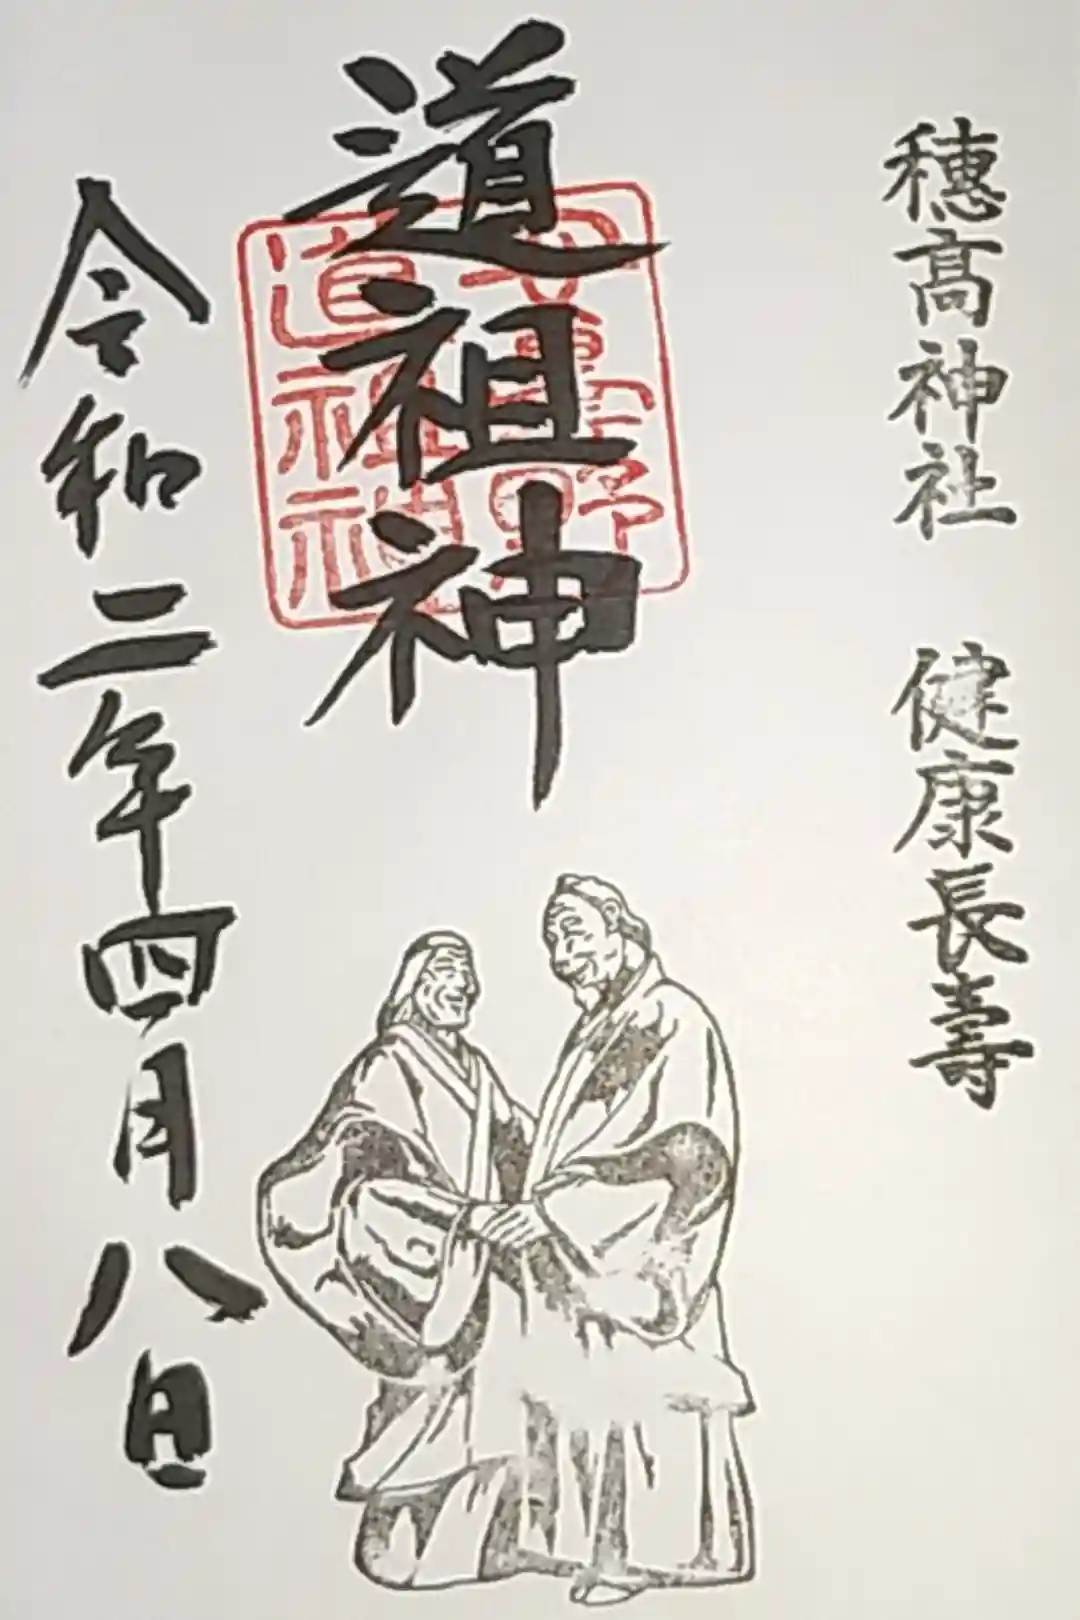 穂髙神社　健康長壽
道祖神
安曇野
道祖神
令和二年四月八日